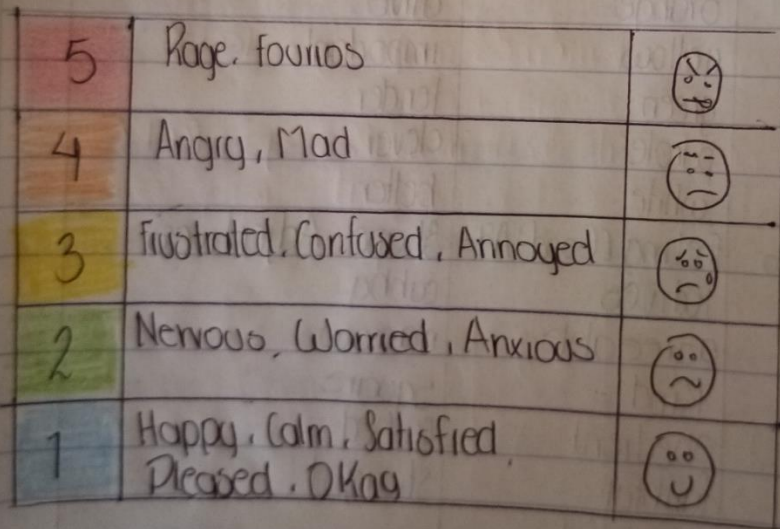 5 Rage. founos
4 Angry, Mad
3 Frustrated. Confused, Annoyed
2 Nervous, Worried, Anxious
1 Happy. Calm. Satisfied
Pleased. Okay